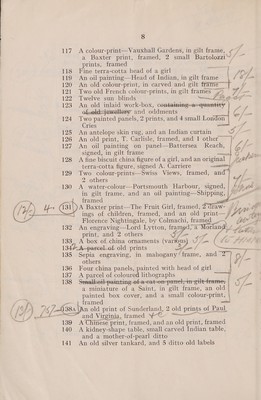 8
117 A colour-print—Vauxhall Gardens, in gilt frame,
a Baxter print, framed, 2 small Bartolozzi
prints, framed
5/-
118 Fine terra-cotta head of a girl
119 An oil painting—Head of Indian, in gilt frame
120 An old colour-print, in carved and gilt frame
121 Two old French colour-prints, in gilt frames
122 Twelve sun blinds
123 An old inlaid work-box, containing a quantity
of old jewellery and oddments
124 Two painted panels, 2 prints, and 4 small London
Cries
125 An antelope skin rug, and an Indian curtain
126 An old print, T. Carlisle, framed, and 1 other
127 An oil painting on panel—Battersea Reach,
signed, in gilt frame
128 A fine biscuit china figure of a girl, and an original
terra-cotta figure, signed A. Carriere
129 Two colour-prints—Swiss Views, framed, and
2 others
130 A water-colour—Portsmouth Harbour, signed,
in gilt frame, and an oil painting—Shipping,
framed
12/- 4 131 A Baxter print—The Fruit Girl, framed, 2 draw-
ings of children, framed, and an old print—
Florence Nightingale, by Colnaghi, framed
132 An engraving—Lord Lytton, framed, a Morland
print, and 2 others
133 A box of china ornaments (various)
134 A parcel of old prints
135 Sepia engraving, in mahogany frame, and 2
others
8/-
136 Four china panels, painted with head of girl
137 A parcel of coloured lithographs
138 Small oil painting of a cat on panel, in gilt frame,
a miniature of a Saint, in gilt frame, an old
painted box cover, and a small colour-print,
framed
5/-
138A An old print of Sunderland, 2 old prints of Paul
and Virginia, framed
139 A Chinese print, framed, and an old print, framed
140 A kidney-shape table, small carved Indian table,
and a mother-of-pearl ditto
141 An old silver tankard, and 5 ditto old labels